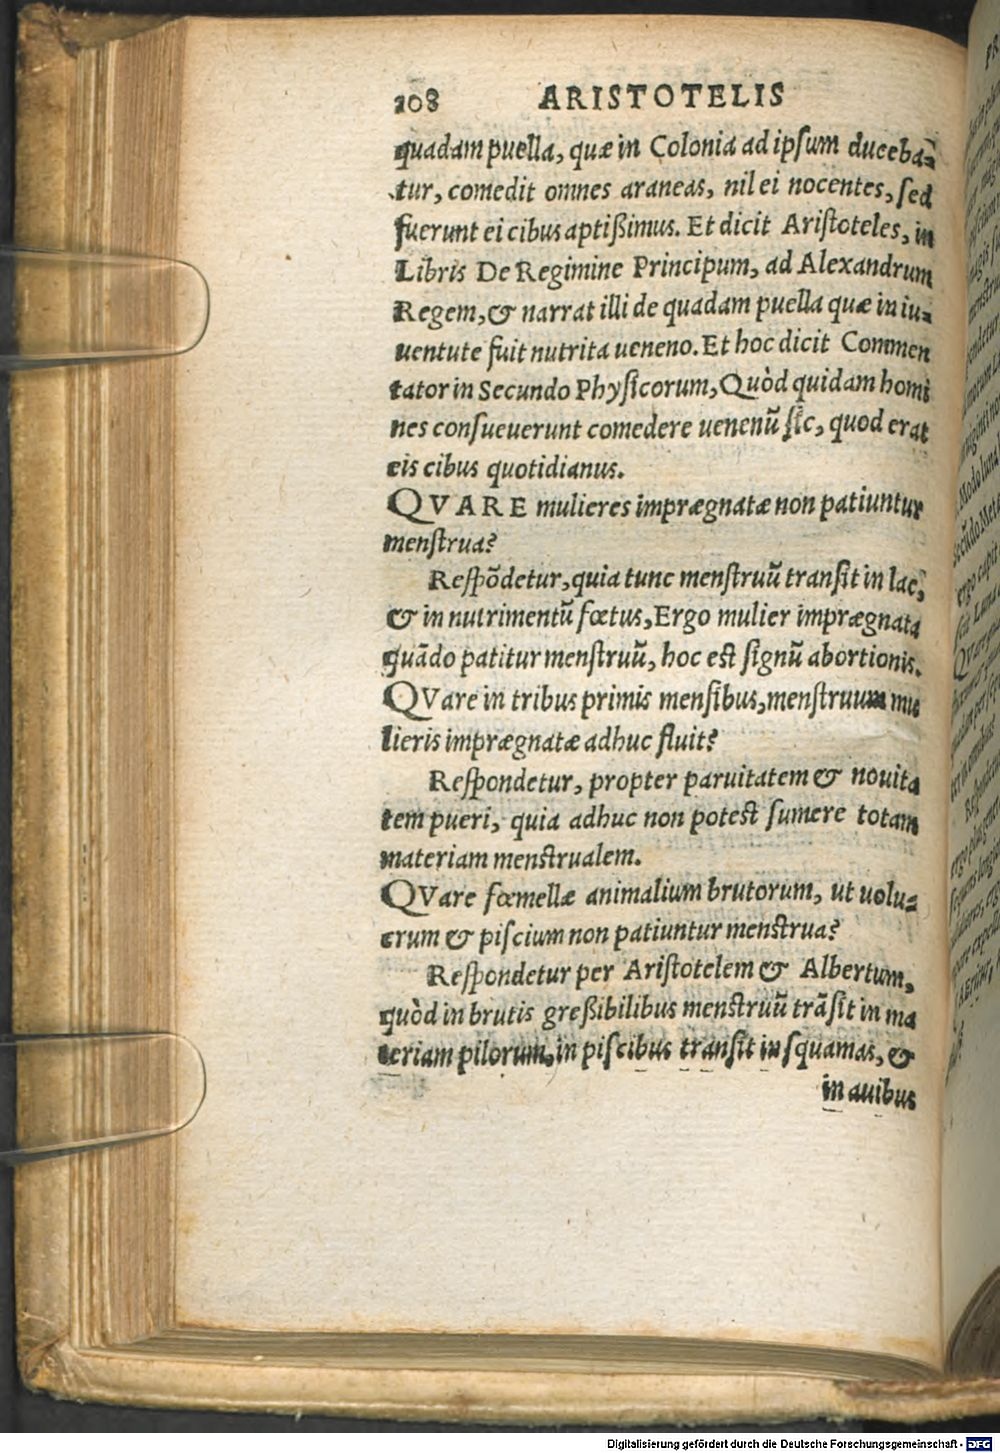 108 ARISTOTELIS
quadam puella, quæ in Colonia ad ipsum duceba=
tur, comedit omnes araneas, nil ei nocentes, sed
fuerunt ei cibus aptißimus. Et dicit Aristoteles, in
Libris De Regimine Principum, ad Alexandrum
Regem, & narrat illi de quadam puella quæ in iu=
uentute fuit nutrita ueneno. Et hoc dicit Commen
tator in Secundo Physicorum, Quòd quidam homi
nes consueuerunt comedere uenenũ sic, quod erat
eis cibus quotidianus.
QVARE mulieres imprægnatæ non patiuntur
menstrua?
Respõdetur, quia tunc menstruũ transit in lac,
& in nutrimentũ fœtus, Ergo mulier imprægnata
quãdo patitur menstruũ, hoc est signũ abortionis.
QVare in tribus primis mensibus, menstruum mu
lieris imprægnatæ adhuc fluit?
Respondetur, propter paruitatem & nouita
tem pueri, quia adhuc non potest sumere totam
materiam menstrualem.
QVare fœmellæ animalium brutorum, ut uolu=
crum & piscium non patiuntur menstrua?
Respondetur per Aristotelem & Albertum,
quòd in brutis greßibilibus menstruũ trãsit in ma
teriam pilorum, in piscibus transit in squamas, &
in auibus
Digitalisierung gefördert durch die Deutsche Forschungsgemeinschaft - DFG